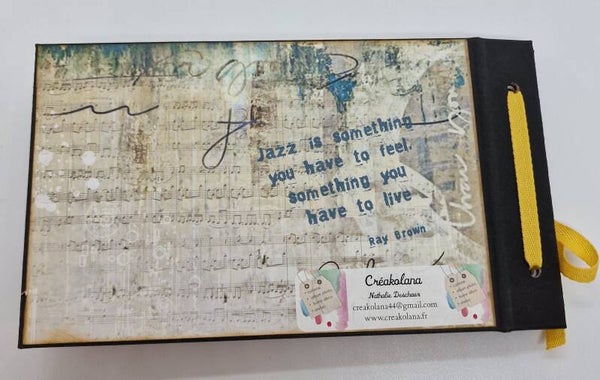 Jazz is something
you have to feel,
something you
have to live
Ray Brown
Créakolana
Nathalie Deschaux
creakolana44@gmail.com
www.creakolana.fr